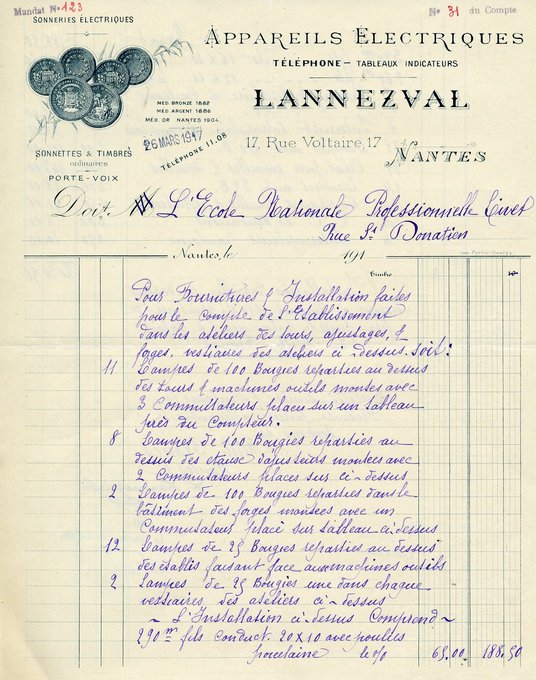 Mandat No 123
No 31 du Compte
SONNERIES ELECTRIQUES
APPAREILS ELECTRIQUES
TÉLÉPHONE – TABLEAUX INDICATEURS
LANNEZVAL
MED. BRONZE 1882
MED. ARGENT 1886
MED. OR NANTES 1904
26 MARS 1917
TÉLÉPHONE 11.08
17, RUE VOLTAIRE, 17
NANTES
SONNETTES & TIMBRES
ordinaires
PORTE-VOIX
Doit M L'Ecole Nationale Professionnelle Livet
Rue St Donatien
Nantes, le 191
Timbre
Pour Fournitures & Installation faites
pour le compte de l'Etablissement
dans les atéliers des tours, ajustages, &
forges, vestiaires des atéliers ci dessus. soit:
11 Lampes de 100 Bougies reparties au dessus
des tours & machines outils montés avec
3 Commutateurs placés sur un tableau
près du Compteur.
8 Lampes de 100 Bougies reparties au
dessus des etaux d'ajusteurs montées avec
2 Commutateurs places sur ci-dessus
2 Lampes de 100 Bougies reparties dans le
bâtiment des forges montées avec un
Commutateur placé sur tableau ci-dessus
12 Lampes de 25 Bougies reparties au dessus
des établis faisant face aux machines outils
2 Lampes de 25 Bougies une dans chaque
vestiaires des atéliers ci-dessus
~ L'Installation ci-dessus Comprend ~
290m fils conduct. 20x10 avec poulies
porcelaine le % 65.00 188.50